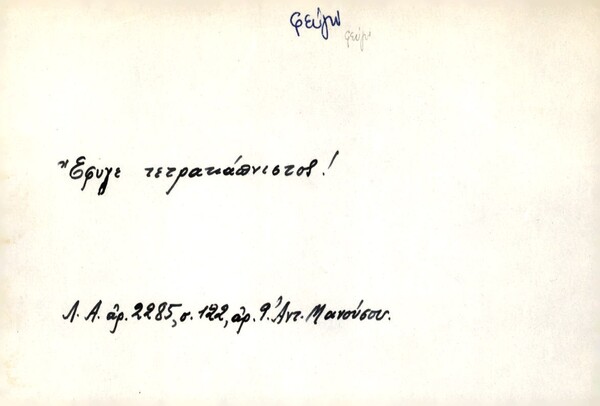 φεύγω
φεύγω
Ἔφυγε τετρακάπνιστος!
Λ. Α. ἀρ. 2285, σ. 122, ἀρ. 9. Ἀντ. Μανούσου.